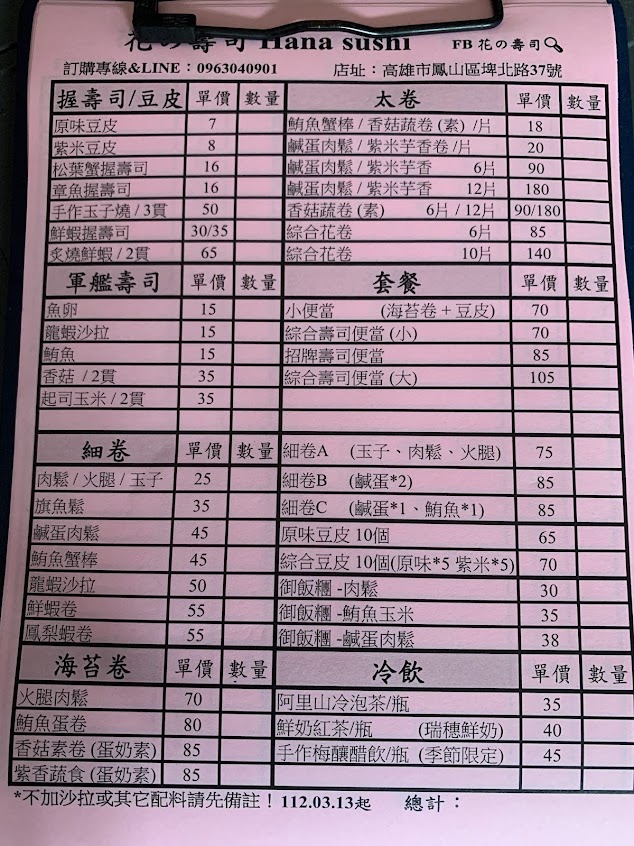 花の壽司 Hana sushi FB 花の壽司
訂購專線&LINE:0963040901 店址:高雄市鳳山區埤北路37號
握壽司/豆皮 單價 數量
原味豆皮 7
紫米豆皮 8
松葉蟹握壽司 16
章魚握壽司 16
手作玉子燒 / 3貫 50
鮮蝦握壽司 30/35
炙燒鮮蝦 / 2貫 65
軍艦壽司 單價 數量
魚卵 15
龍蝦沙拉 15
鮪魚 15
香菇 / 2貫 35
起司玉米 / 2貫 35
細卷 單價 數量
肉鬆 / 火腿 / 玉子 25
旗魚鬆 35
鹹蛋肉鬆 45
鮪魚蟹棒 45
龍蝦沙拉 50
鮮蝦卷 55
鳳梨蝦卷 55
海苔卷 單價 數量
火腿肉鬆 70
鮪魚蛋卷 80
香菇素卷 (蛋奶素) 85
紫香蔬食 (蛋奶素) 85
太卷 單價 數量
鮪魚蟹棒 / 香菇蔬卷 (素) /片 18
鹹蛋肉鬆 / 紫米芋香卷 /片 20
鹹蛋肉鬆 / 紫米芋香 6片 90
鹹蛋肉鬆 / 紫米芋香 12片 180
香菇蔬卷 (素) 6片 / 12片 90/180
綜合花卷 6片 85
綜合花卷 10片 140
套餐 單價 數量
小便當 (海苔卷 + 豆皮) 70
綜合壽司便當 (小) 70
招牌壽司便當 85
綜合壽司便當 (大) 105
細卷A (玉子、肉鬆、火腿) 75
細卷B (鹹蛋*2) 85
細卷C (鹹蛋*1、鮪魚*1) 85
原味豆皮 10個 65
綜合豆皮 10個(原味*5 紫米*5) 70
御飯糰 -肉鬆 30
御飯糰 -鮪魚玉米 35
御飯糰 -鹹蛋肉鬆 38
冷飲 單價 數量
阿里山冷泡茶/瓶 35
鮮奶紅茶/瓶 (瑞穗鮮奶) 40
手作梅釀醋飲/瓶 (季節限定) 45
*不加沙拉或其它配料請先備註！112.03.13起 總計：